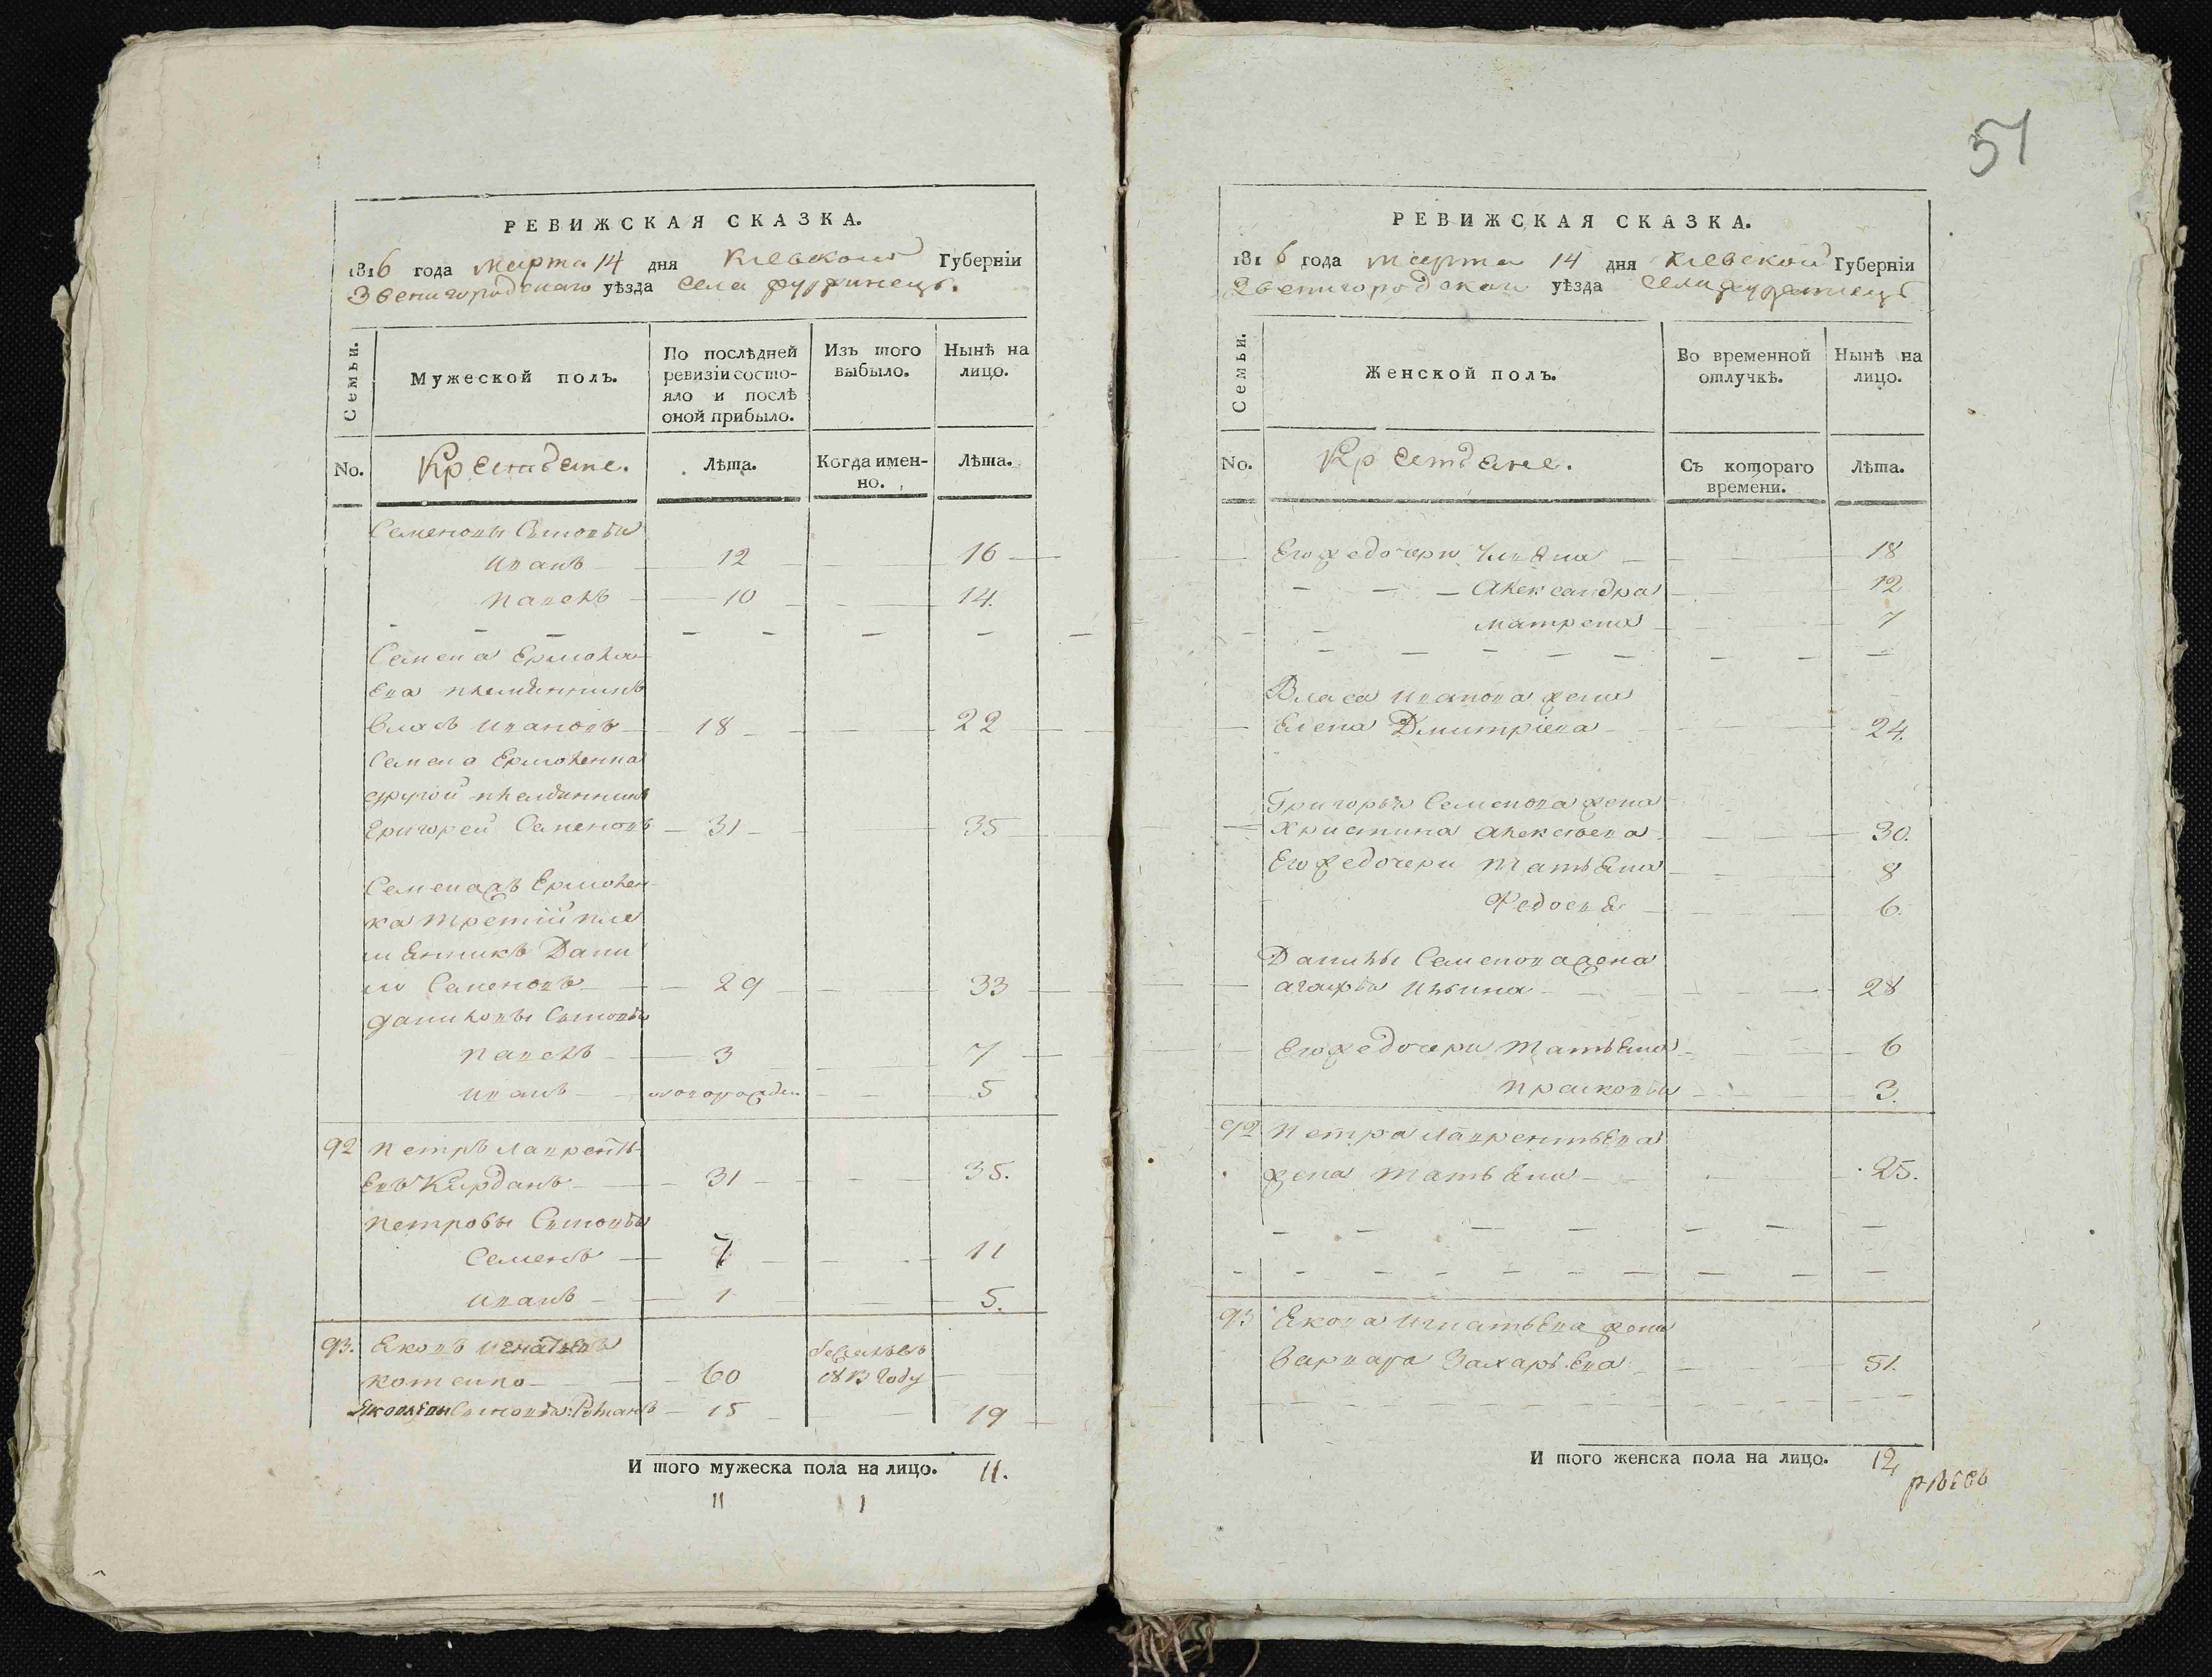 РЕВИЖСКАЯ СКАЗКА.
1816 года марта 14 дня Киевской Губерніи
Звенигородскаго уѣзда Села
Семьи.
Мужеской полъ.
По послѣдней ревизіи состо-
яло и послѣ
оной прибыло.
Изъ того
выбыло.
Нынѣ на
лицо.
No.
Крестьяне.
Лѣта.
Когда имен-
но.
Лѣта.
Семеновы Сыновья
Иванъ 12 16
Павелъ 10 14.
Семена Ермола
ева племянникъ
Власъ Ивановъ 18 22
Семена Ермоленка
другой племянникъ
Григорей Семеновъ 31 35
Ермолен
ка третій пле
мянникъ Дани
ло Семеновъ 29 33
Даниловы Сыновья
Павелъ 3 7
Иванъ 5
92 Петръ Лаврентъ
евъ Кирданъ 31 35.
Петровы Сыновья
Семенъ 7 11
Иванъ 1 5.
93. Яковъ Игнатьевъ
60 1813 году
Сыновья: Романъ 15 19
И того мужеска пола на лицо. 11.
11 1
51
РЕВИЖСКАЯ СКАЗКА.
1816 года марта 14 дня Киевской Губерніи
Звенигородскаго уѣзда Села
Семьи.
Женской полъ.
Во временной
отлучкѣ.
Нынѣ на
лицо.
No.
Крестьяне.
Съ котораго
времени.
Лѣта.
Его же дочери Ульяна 18
Александра 12
Матрена 7
Власа Иванова жена
Елена Дмитріева 24.
Григорья Семенова жена
Христина Алексѣева 30.
Его же дочери Татьяна 8
Федосья 6.
Данилы Семенова жена
Агафья Ильина 28
Его же дочери Татьяна 6
Прасковья 3.
92 Петра Лаврентьева
жена Татьяна 25.
93 Якова Игнатьева жена
Варвара Захарьева 51.
И того женска пола на лицо. 12